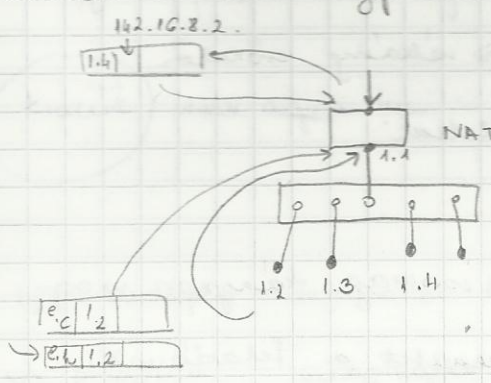 142.16.8.2.
1.4
NAT
1.1
1.2 1.3 1.4
e.c 1.2
e.h 1.2